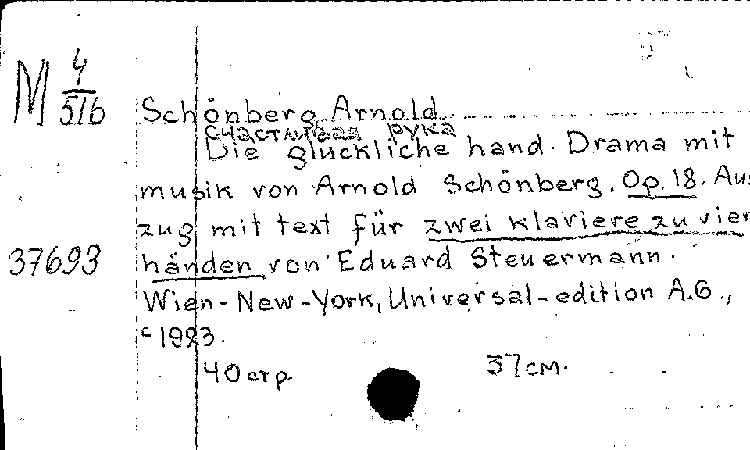 М 4/516
Schönberg Arnold
счастливая рука
Die gluckliche hand. Drama mit
musik von Arnold Schönberg. Op. 18. Aus
zug mit text für zwei klaviere zu vier
37693
händen von Eduard Steuermann.
Wien-New-York, Universal-edition A.G.,
c 1923.
40 стр. 37 см.